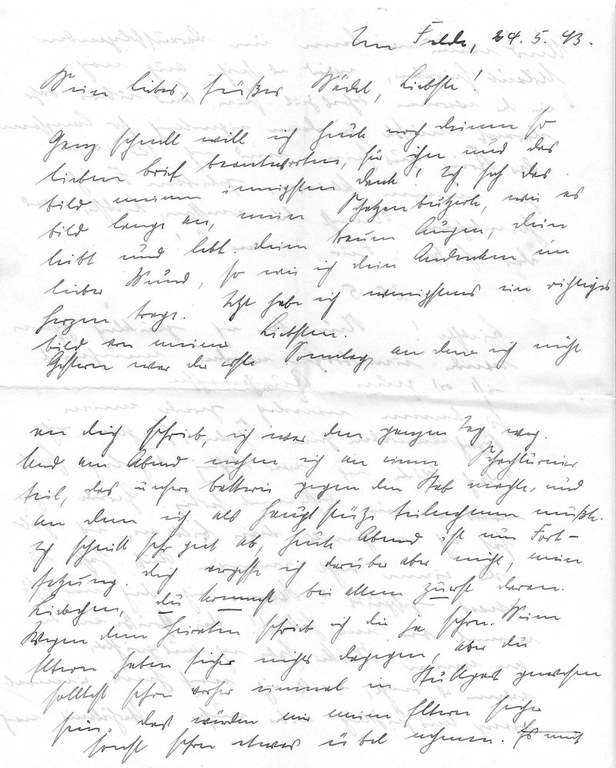 Im Felde, 24. 5. 43.
Mein liebes, süßes Mädel, Liebste!
Ganz schnell will ich heute noch deinen so
lieben Brief beantworten, für ihn und das
Bild meinen innigsten Dank! Ich sah das
Bild lange an, mein, wie es
leibt und lebt. deine treuen Augen, dein
lieber Mund, so wie ich dein Andenken im
Herzen trage. Jetzt habe ich wenigstens ein richtiges
Bild von meiner Liebsten.
Gestern war der erste Sonntag, an dem ich nicht
an dich schrieb, ich war den ganzen Tag weg.
Und am Abend nahm ich an einem Schachturnier
teil, das unsere Batterie gegen den Stab machte, und
an dem ich als Hauptstütze teilnehmen mußte.
Ich schnitt sehr gut ab, heute Abend ist nun Fort-
setzung. dich vergesse ich darüber aber nicht, mein
Liebchen, du kommst bei allem zuerst daran.
Wegen dem Heiraten schrieb ich dir ja schon. Meine
Eltern haben sicher nichts dagegen, aber du
solltest schon vorher einmal in Stuttgart gewesen
sein, das würden mir meine Eltern
sonst schon etwas übel nehmen. Es mut